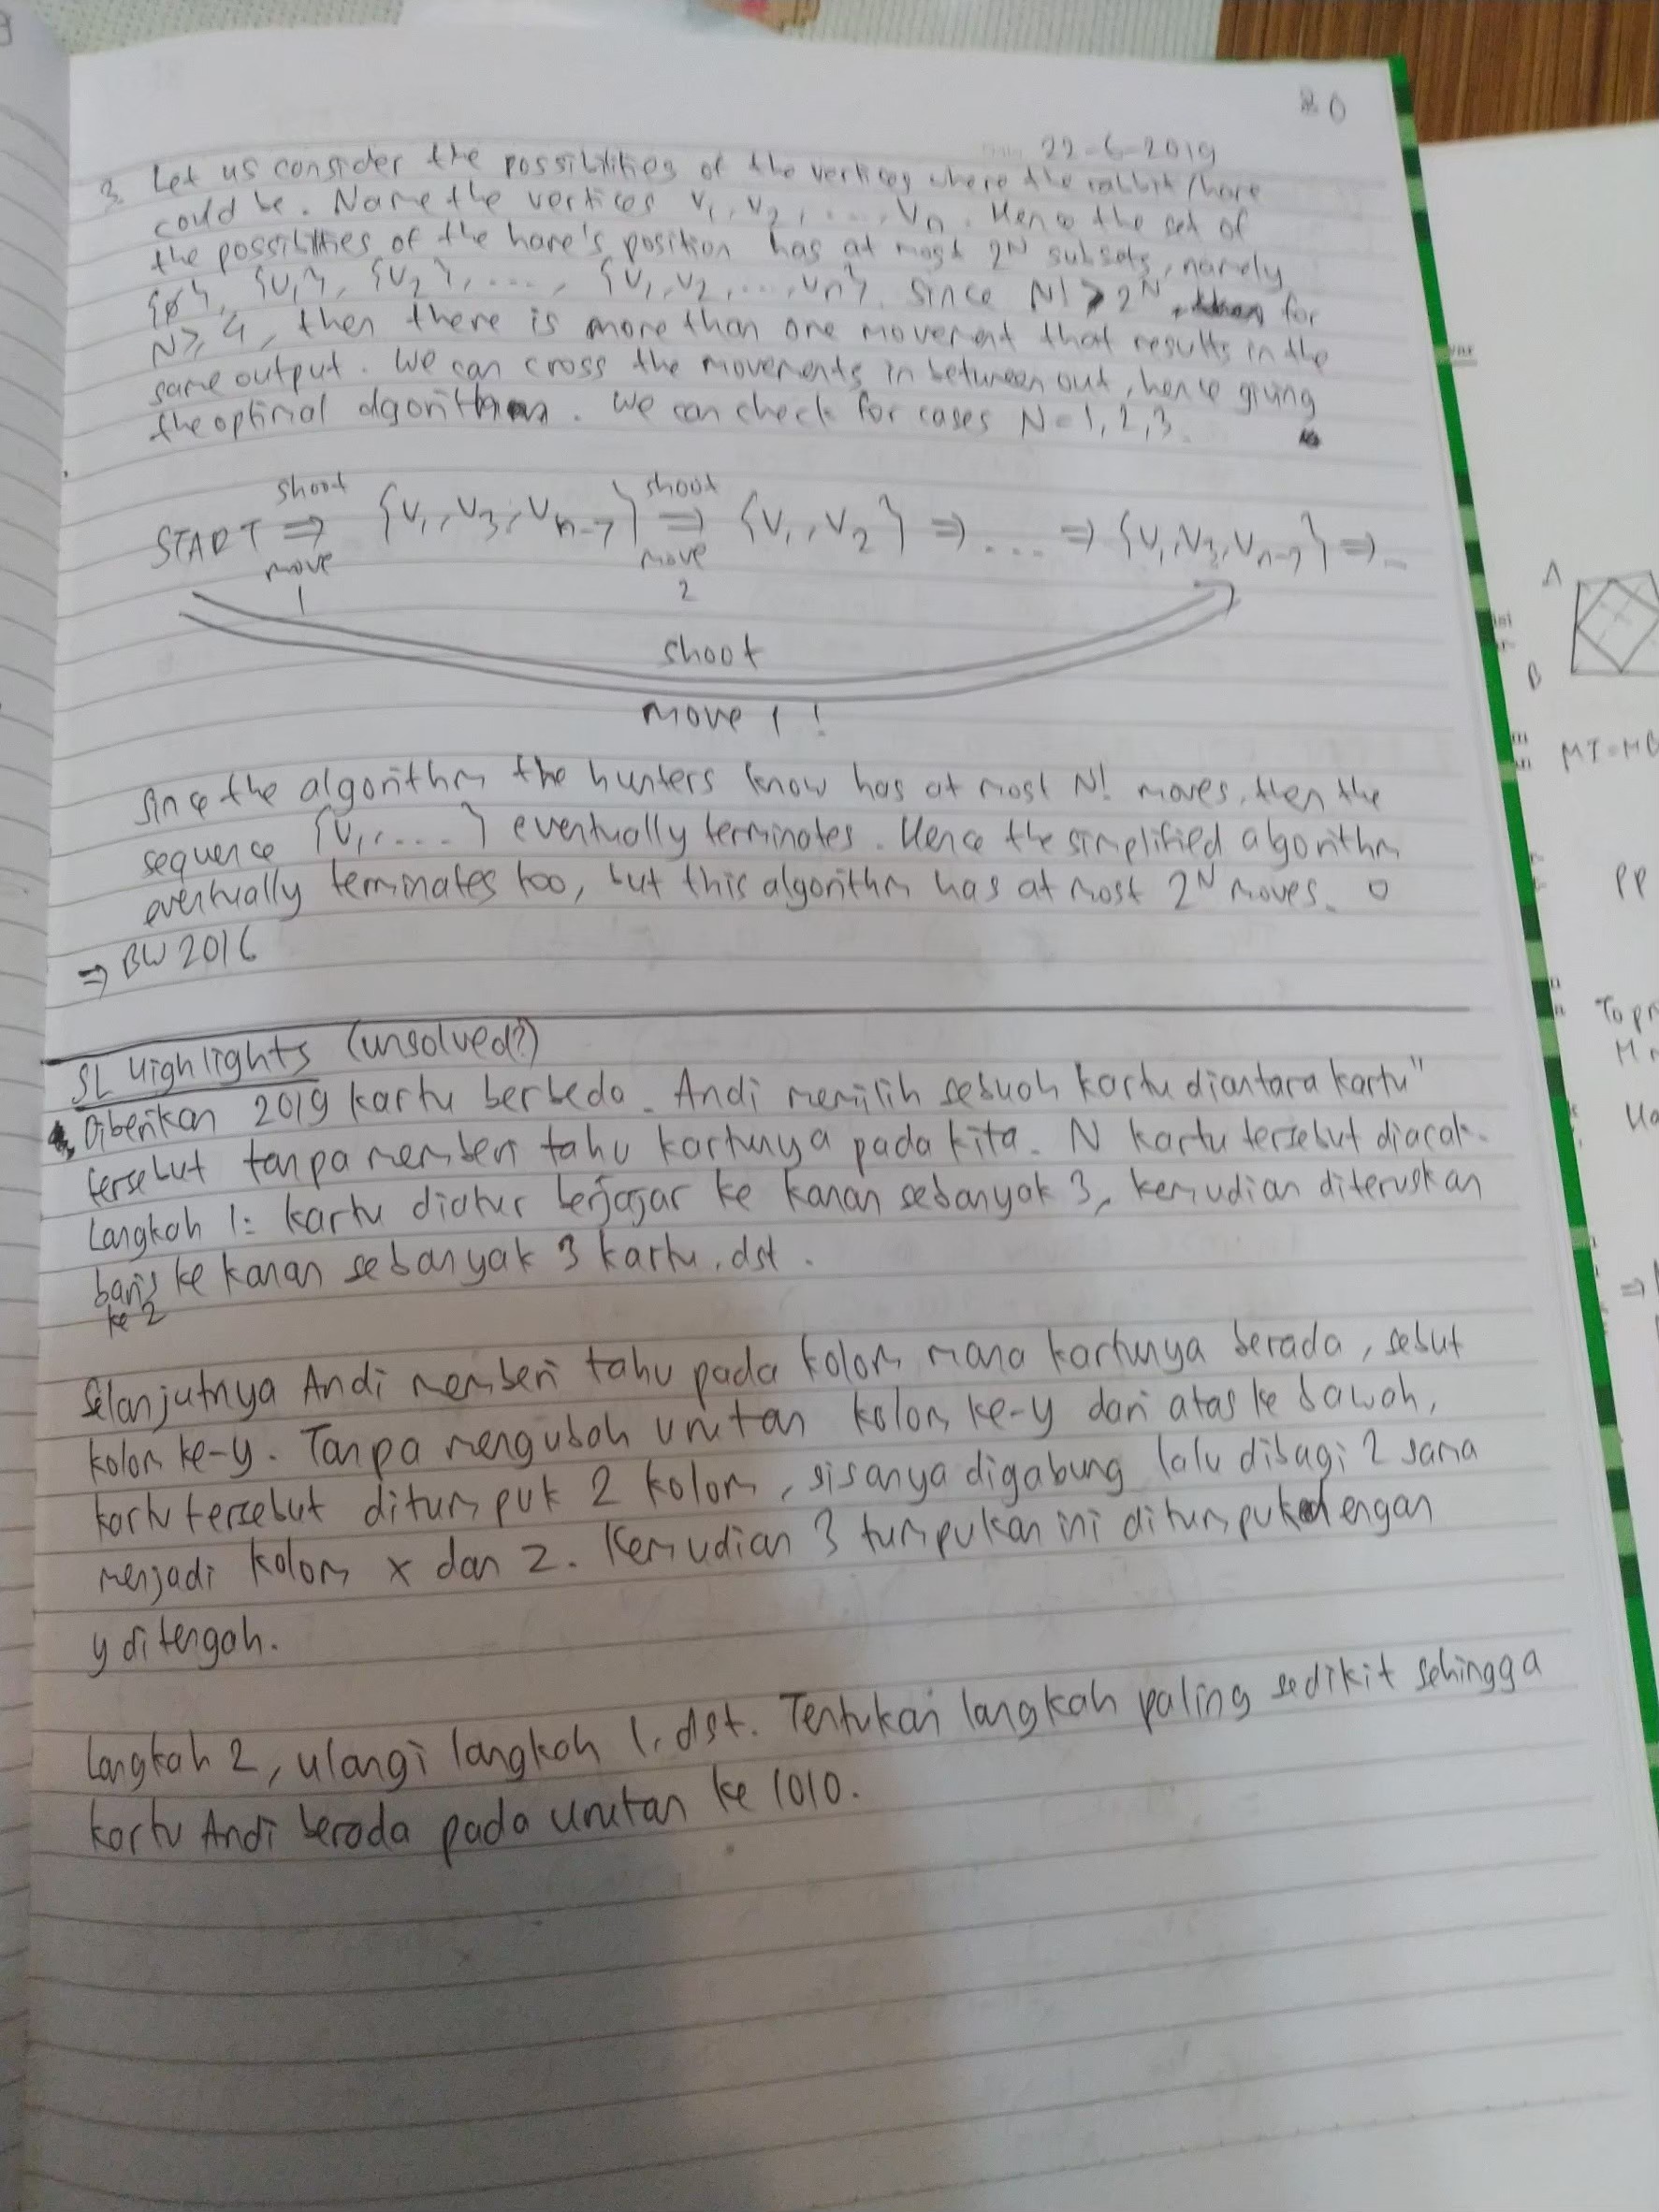 20
22-6-2019
3 Let us consider the possibilities of the vertices where the rabbit/hare
could be. Name the vertices v1, v2, ...., vn. Hence the set of
the possibilities of the hare's position has at most 2^N subsets, namely
{∅}, {v1}, {v2}, ...., {v1, v2, ..., vn}. Since N! > 2^N, for
N ≥ 4, then there is more than one movement that results in the
same output. We can cross the movements in between out, hence giving
the optimal algorithm. We can check for cases N=1,2,3.
shoot shoot
START ⇒ {v1, v3, vn-7} ⇒ {v1, v2} ⇒ ... ⇒ {v1, v3, vn-7} ⇒ ..
move move
1 2
shoot
move 1!
Since the algorithm the hunters know has at most N! moves, then the
sequence {v1, ....} eventually terminates. Hence the simplified algorithm
eventually terminates too, but this algorithm has at most 2^N moves. □
⇒ BW 2016
SL Highlights (unsolved?)
Diberikan 2019 kartu berbeda. Andi memilih sebuah kartu diantara kartu"
tersebut tanpa memberi tahu kartunya pada kita. N kartu tersebut diacak.
Langkah 1: kartu diatur berjajar ke kanan sebanyak 3, kemudian diteruskan
baris ke kanan sebanyak 3 kartu, dst.
ke 2
Selanjutnya Andi memberi tahu pada kolom mana kartunya berada, sebut
kolom ke-y. Tanpa mengubah urutan kolom ke-y dari atas ke bawah,
kartu tersebut ditumpuk 2 kolom, sisanya digabung lalu dibagi 2 sama
menjadi kolom x dan z. Kemudian 3 tumpukan ini ditumpuk dengan
y di tengah.
Langkah 2, ulangi langkah 1, dst. Tentukan langkah paling sedikit sehingga
kartu Andi berada pada urutan ke 1010.
A
B
MT=MB
PP
M
⇒